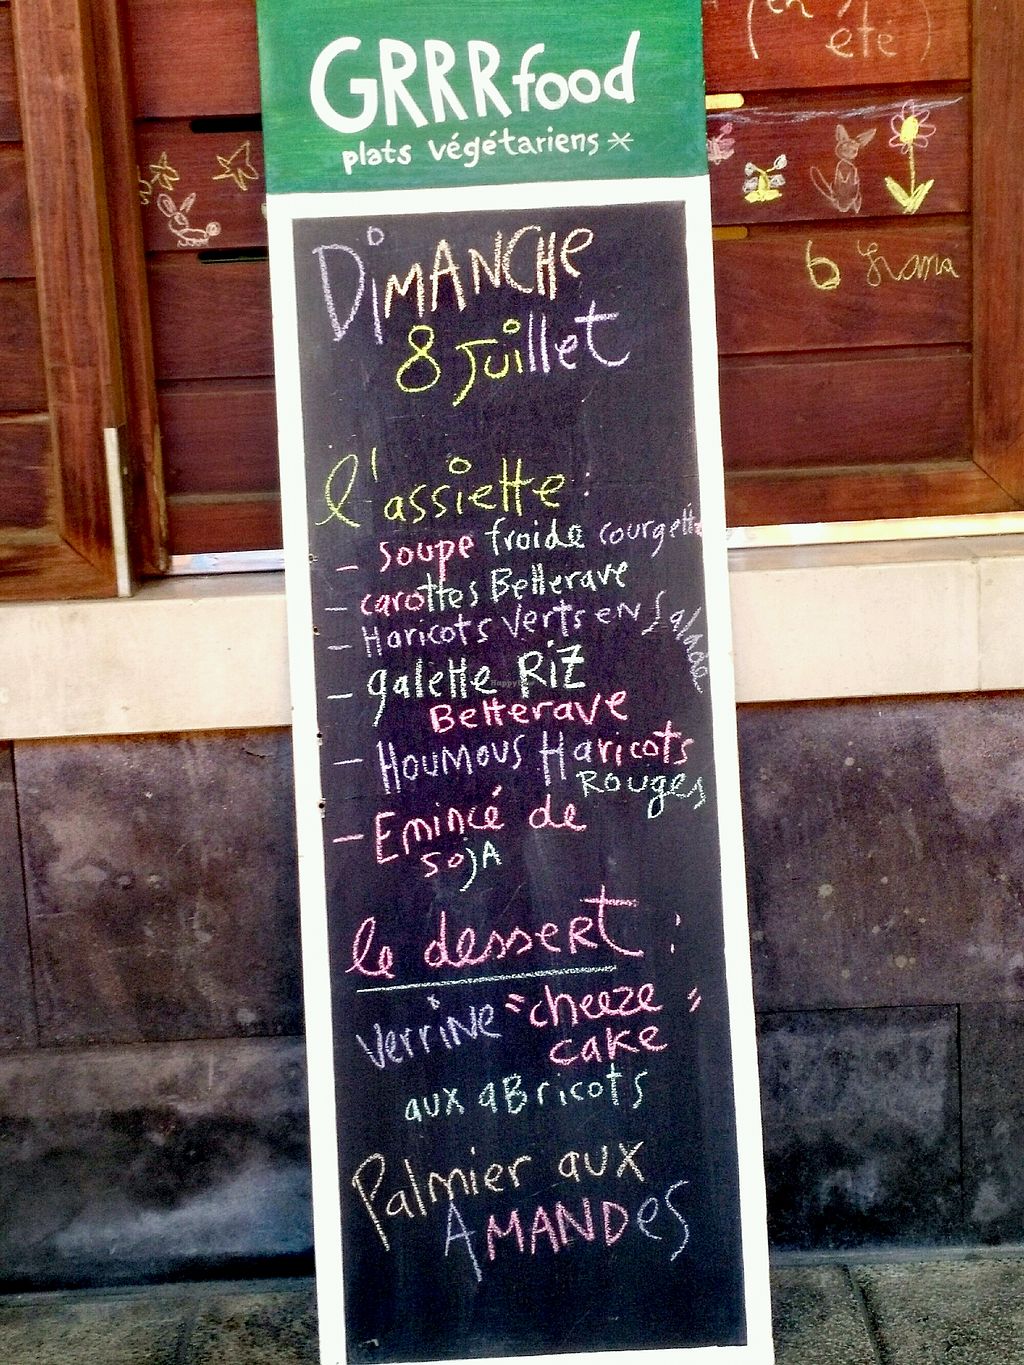 GRRRfood
plats végétariens *
Dimanche
8 Juillet
l'assiette :
- soupe froide courgette
- carottes Betterave
- Haricots verts en Salade
- galette RiZ
Betterave
- Houmous Haricots
Rouges
- Emincé de
sojA
le dessert :
verrine "cheeze
cake"
aux aBricots
Palmier aux
AMANDes
été)